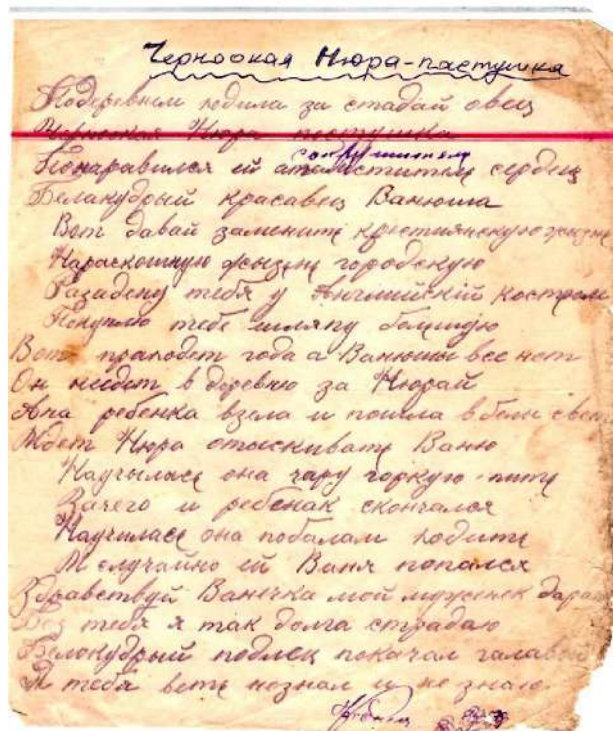 Черноокая Нюра-пастушка
Подеревнем ходила за стадай овец
Черноокая Нюра пастушка
сокрушитель
Понаравился ей сердец
Белакудрый красавец Ванюша
Вот давай заменить крестиянскую жизнь
Нараскошную жызнь городскую
Разадену тебя у Английскій костром
Покуплю тебе шляпу большую
Вот праходет года а Ванюши все нет
Он нейдет в деревню за Нюрай
Ана ребенка взела и пошла в белы свет
Идет Нюра отыскивать Ваню
Научылась она чару горкую пить
Вачего и ребенак скончался
Научилась она побалам ходить
И случайно ей Ваня попался
Здравствуй Ванечка мой муженек дара
Без тебя я так долга страдаю
Белокудрый подлец покачал галавой
Я тебя веть незнал и не знаю